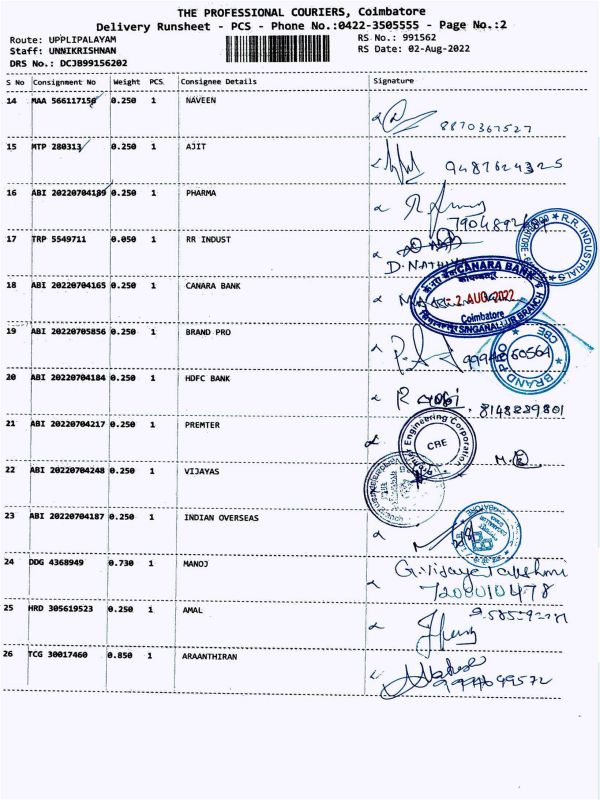 THE PROFESSIONAL COURIERS, Coimbatore
Delivery Runsheet - PCS - Phone No:0422-3505555 - Page No.:2
Route: UPPLIPALAYAM RS No.: 991562
Staff: UNNIKRISHNAN RS Date: 02-Aug-2022
DRS No.: DCJB99156202
S No Consignment No Weight PCS Consignee Details Signature
14 MAA 566117156 0.250 1 NAVEEN
8870367527
15 MTP 280313 0.250 1 AJIT
9487624325
16 ABI 20220704189 0.250 1 PHARMA
17 TRP 5549711 0.050 1 RR INDUST
R.R. INDUSTRIALS
18 ABI 20220704165 0.250 1 CANARA BANK
CANARA BANK
2 AUG 2022
Coimbatore
SINGANALLUR BRANCH
19 ABI 20220705856 0.250 1 BRAND PRO
BRAND PRO CBE
20 ABI 20220704184 0.250 1 HDFC BANK
8148289801
21 ABI 20220704217 0.250 1 PREMTER
Engineering Corporation
CBE
22 ABI 20220704248 0.250 1 VIJAYAS
23 ABI 20220704187 0.250 1 INDIAN OVERSEAS
24 DDG 4368949 0.730 1 MANOJ
G.Vijaya Lakshmi
7200010478
25 HRD 305619523 0.250 1 AMAL
26 TCG 30017460 0.850 1 ARAANTHIRAN